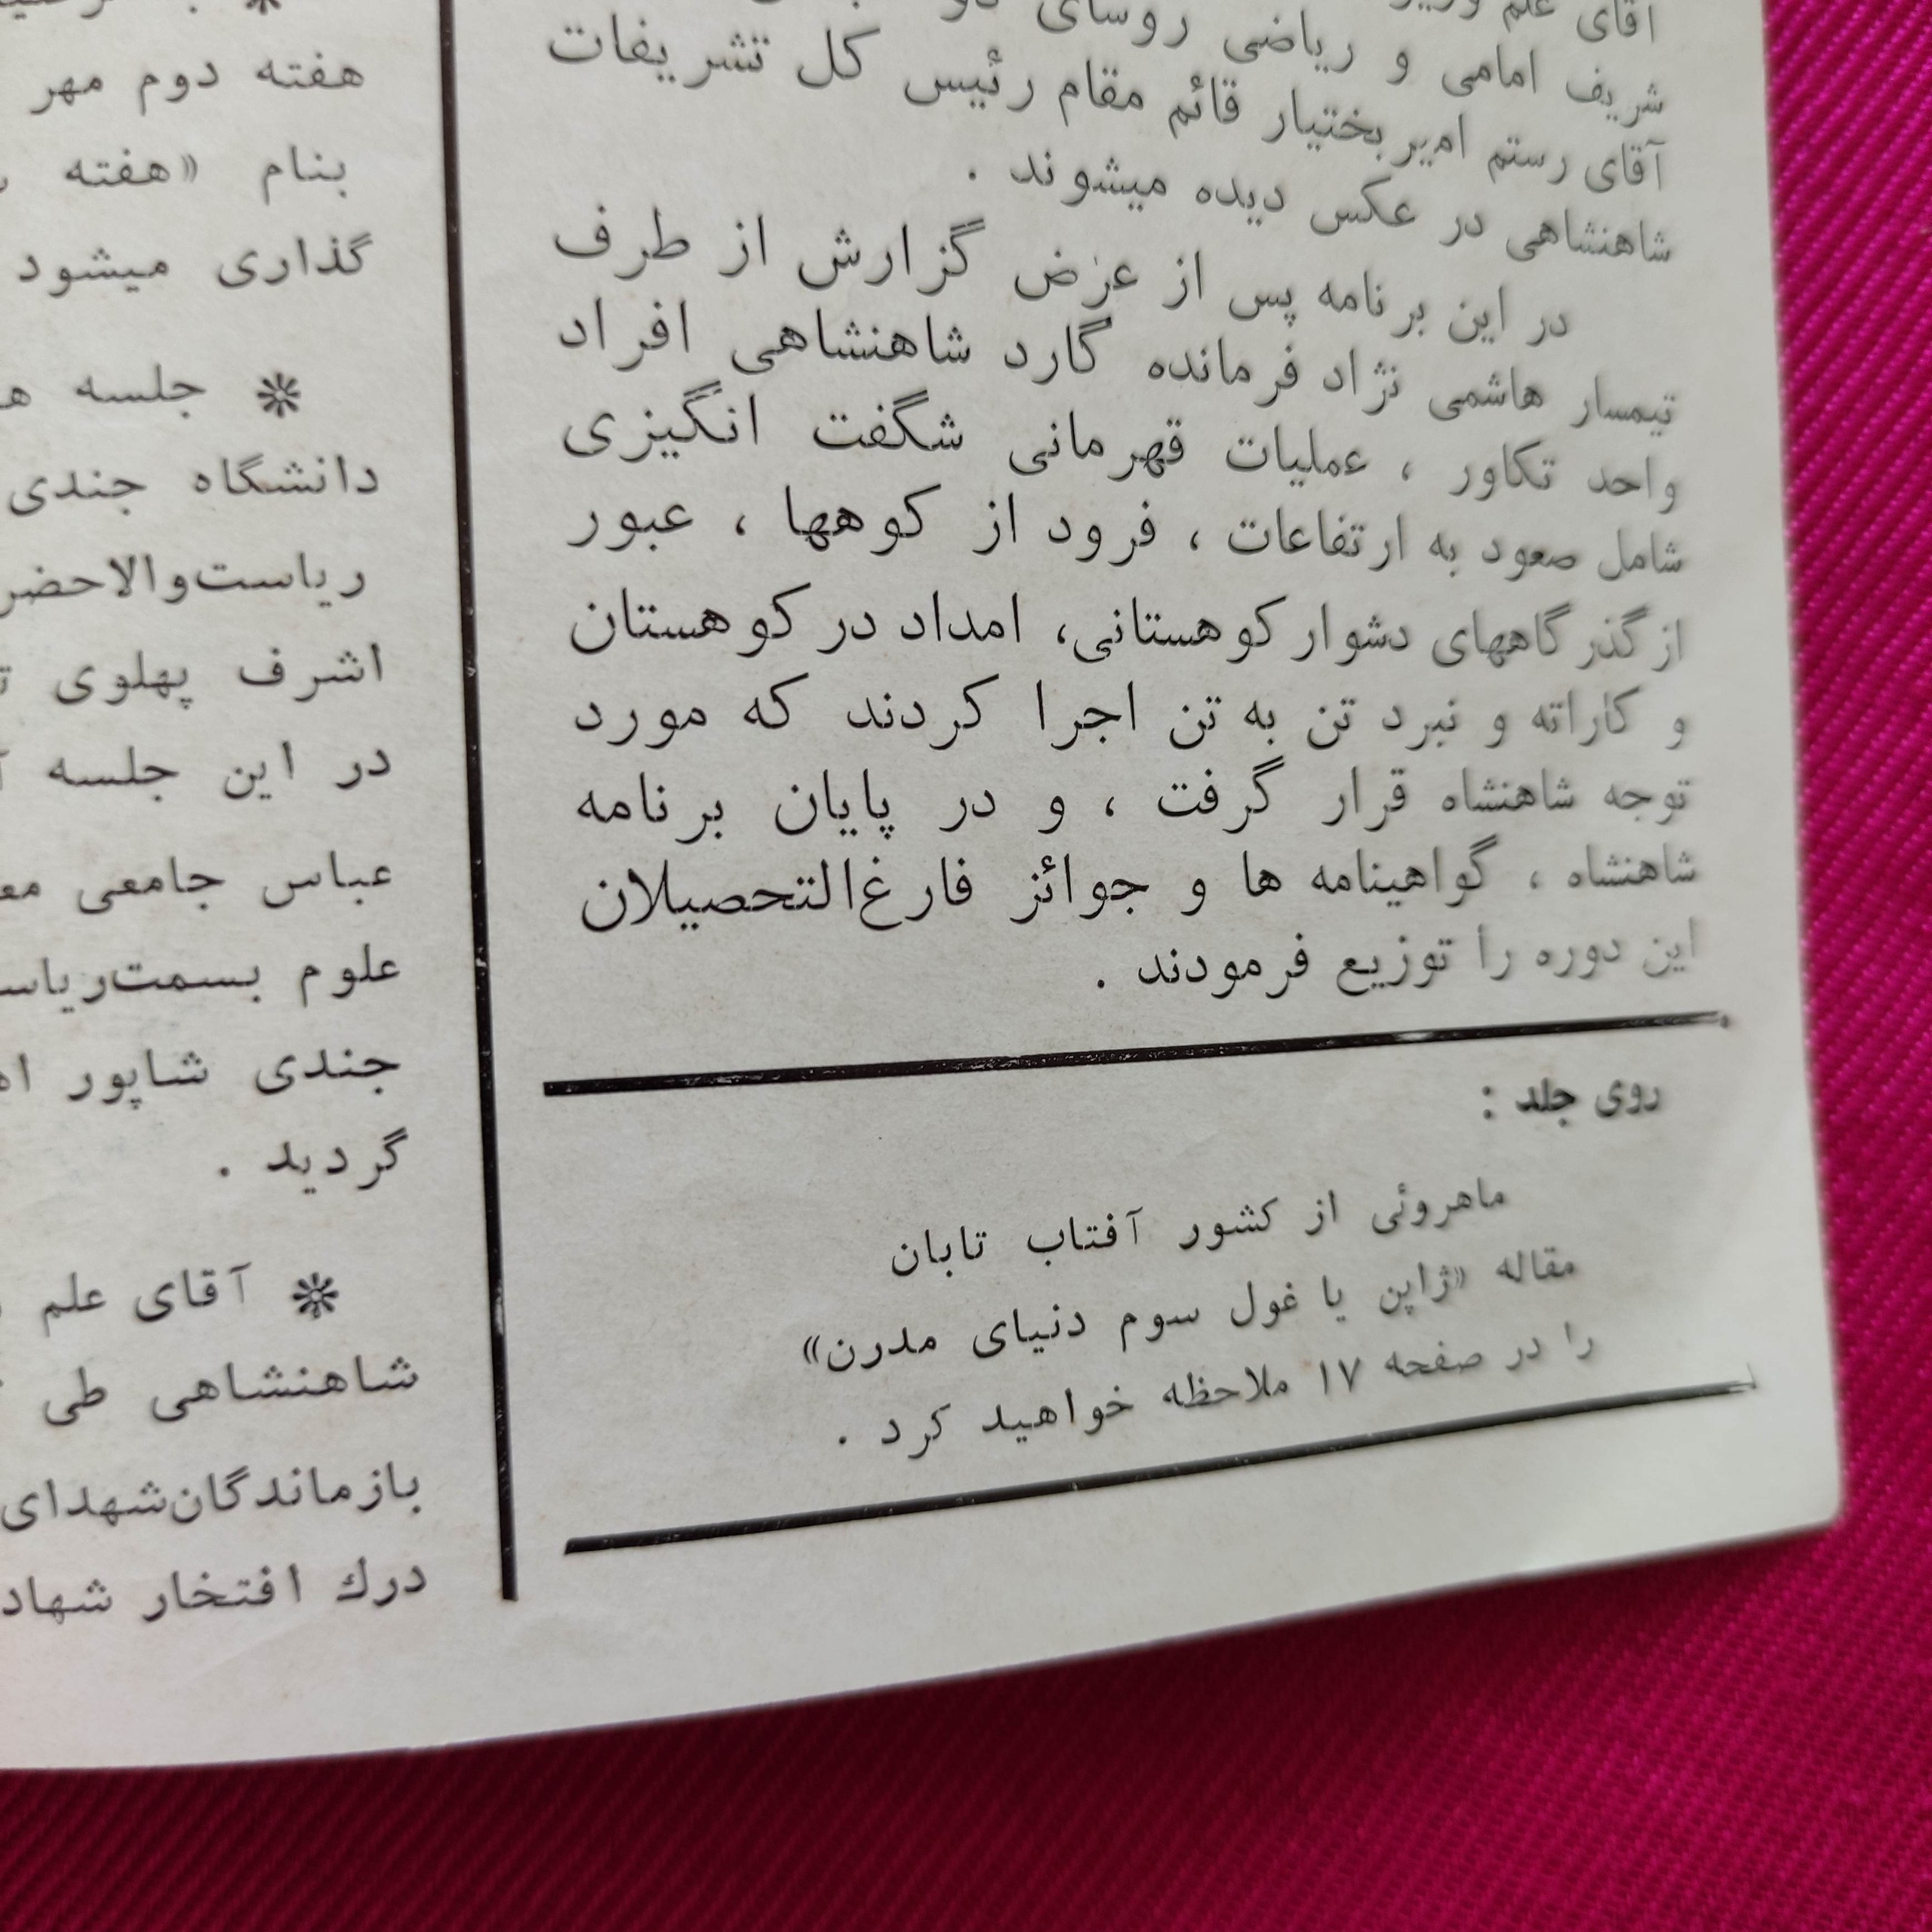 آقای علم وزیر
شریف امامی و ریاضی روسای دو
آقای رستم امیربختیار قائم مقام رئیس کل تشریفات
شاهنشاهی در عکس دیده میشوند .
در این برنامه پس از عرض گزارش از طرف
تیمسار هاشمی نژاد فرمانده گارد شاهنشاهی افراد
واحد تکاور ، عملیات قهرمانی شگفت انگیزی
شامل صعود به ارتفاعات ، فرود از کوهها ، عبور
از گذرگاههای دشوار کوهستانی، امداد در کوهستان
و کاراته و نبرد تن به تن اجرا کردند که مورد
توجه شاهنشاه قرار گرفت ، و در پایان برنامه
شاهنشاه ، گواهینامه ها و جوائز فارغ‌التحصیلان
این دوره را توزیع فرمودند .
روی جلد :
ماهروئی از کشور آفتاب تابان
مقاله «ژاپن یا غول سوم دنیای مدرن»
را در صفحه ۱۷ ملاحظه خواهید کرد .
هفته دوم مهر
بنام «هفته
گذاری میشود
❊ جلسه
دانشگاه جندی
ریاست‌والاحضر
اشرف پهلوی
در این جلسه
عباس جامعی
علوم بسمت‌ریاس
جندی شاپور
گردید .
❊ آقای علم
شاهنشاهی طی
بازماندگان‌شهدای
درك افتخار شهاد